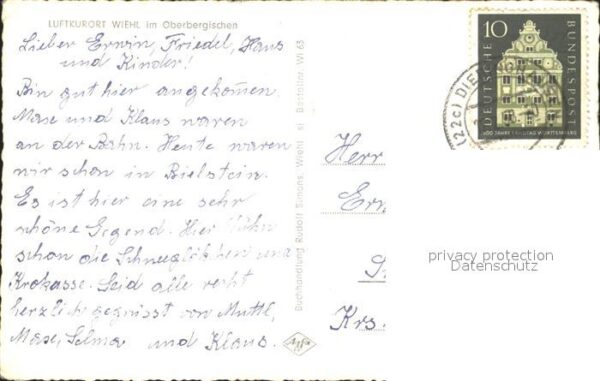 LUFTKURORT WIEHL im Oberbergischen
Lieber Erwin, Friedel, Hans
und Kinder!
Bin gut hier angekommen.
Mase und Klaus waren
an der Bahn. Heute waren
wir schon in Bielstein.
Es ist hier eine sehr
schöne Gegend. Hier blühn
schon die Schneeglökchen und
Krokasse. Seid alle recht
herzlich gegrüsst von Mutti,
Mase, Selma und Klaus.
Buchhandlung Rudolf Simons, Wiehl Bestellnr. WI 63
Agfa
10
DEUTSCHE
BUNDESPOST
LANDTAG WÜRTTEMBERG
(22c) DIE
Herr
Er
Krs.
privacy protection
Datenschutz